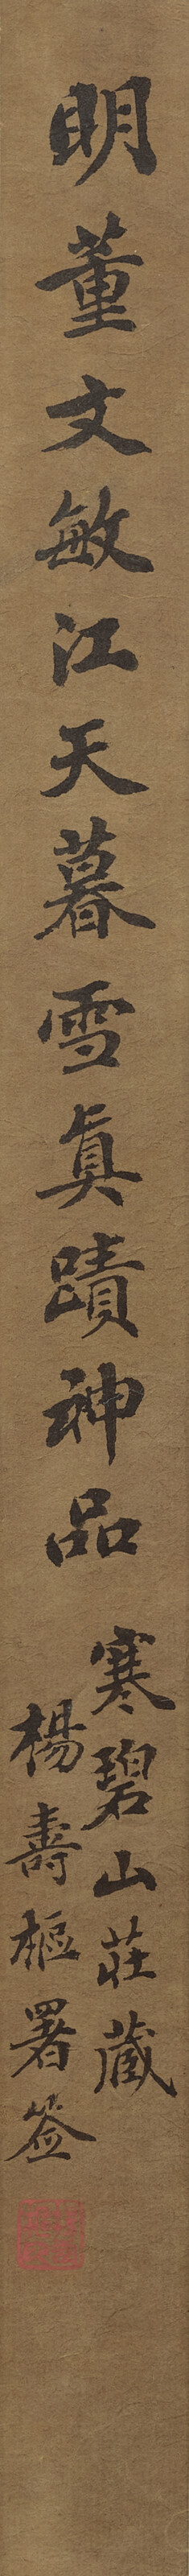 明董文敏江天暮雪真蹟神品
寒碧山莊藏
楊壽樞署簽